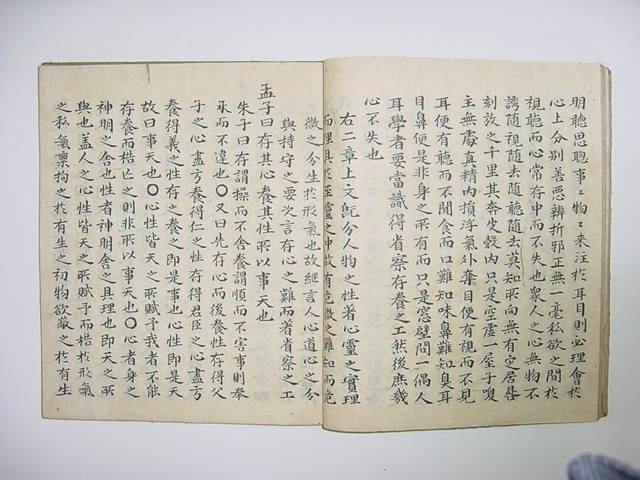 明聽思聰事〻物〻来注於耳目則必理會於
心上分別善悪辨折邪正無一毫私欲之間於
視聽而心常存中而不失也衆人之心無物不
誘隨視隨去隨聽隨去莫知所向無有定居晷
刻放之千里其奔皮殼内只是空虛一屋子嗖
主無處真精内損浮氣外奪目便有視而不見
耳便有聽而不聞食而口難知味鼻難知臭耳
目鼻便是非身之所有而只是窓壁間一偶人
耳學者要當識得省察存養之工然後庶幾
心不失也
右二章上文旣分人物之性著心靈之實理
而理具於至靈之中故有危微之難知而危
微之分生於形氣也故継言人心道心之分
與持守之要次言存心之難而著省察之工
孟子曰存其心養其性所以事天也
朱子曰存謂操而不舍養謂順而不害事則奉
承而不違也○又曰先存心而後養性存得父
子之心盡方養得仁之性存得君臣之心盡方
養得義之性存之養之即是事也心性即是天
故曰事天也○心性皆天之所賦予我者不能
存養而梏亡之則非所以事天也○心者身之
神明之舍也性者神明舎之具理也即天之所
與也盖人之心性皆天之所賦予而梏於形氣
之私氣禀拘之於有生之初物欲蔽之於有生